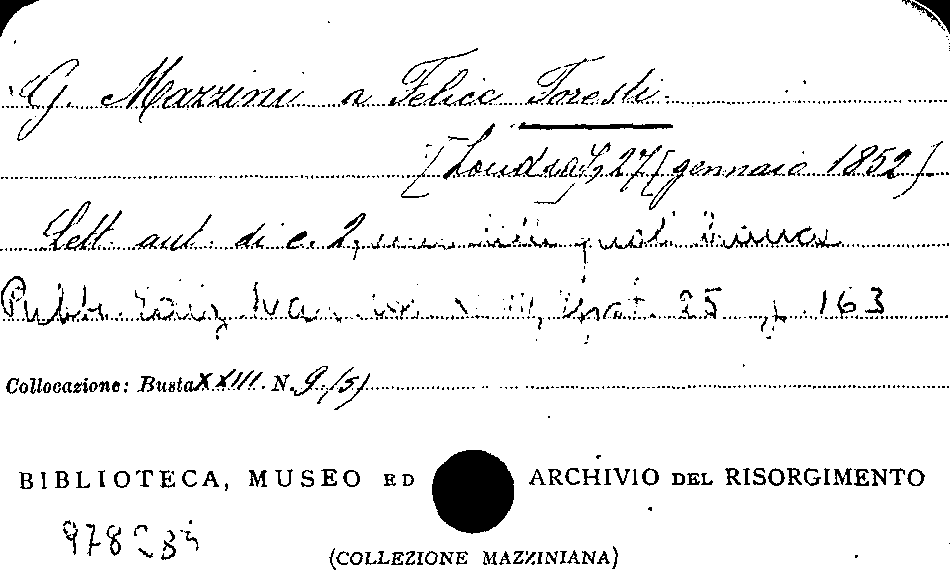 G. Mazzini a Felice Foresti
[Londra], 27 [gennaio 1852].
Lett. aut. di c. 2, una delle quali bianca
Pubbl. Ediz. Naz. 25 p. 163
Collocazione: Busta XXIII. N. 9 (5)
BIBLIOTECA, MUSEO ED ARCHIVIO DEL RISORGIMENTO
(COLLEZIONE MAZZINIANA)